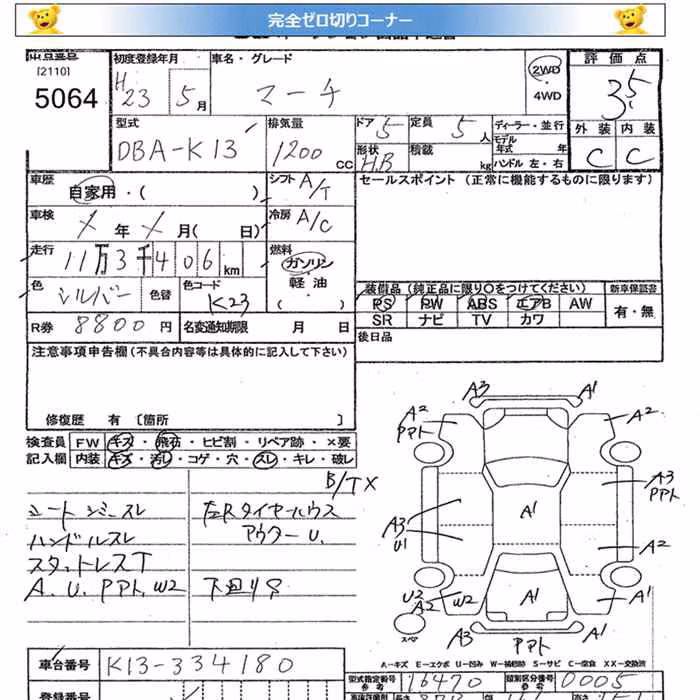 完全ゼロ切りコーナー
出品番号
[2110]
5064
初度登録年月
H23 5月
車名・グレード
マーチ
2WD
・
4WD
評価点
3.5
外装 内装
C C
型式
DBA-K13
排気量
1200 CC
ドア 5
形状 H.B
定員 5人
積載 kg
ディーラー・並行
モデル年式 年式
ハンドル 左・右
車歴
自家用・( )
シフト A/T
車検
年 月( 日)
冷房 A/C
走行
11万3千406km
燃料
ガソリン
・
軽油
( )
色
シルバー
色替
色コード
K23
R券 8800円
名変通知期限 月 日
セールスポイント (正常に機能するものに限ります)
装備品 (純正品に限り〇をつけてください) 新車保証書
PS PW ABS エアB AW
SR ナビ TV カワ
有・無
後日品
注意事項申告欄(不具合内容等は具体的に記入して下さい)
修復歴 有 〔箇所 〕
検査員記入欄
FW キズ・飛石・ヒビ割・リペア跡・×要
内装 キズ・汚レ・コゲ・穴・スレ・キレ・破レ
B/TX
シートシミスレ
ハンドルスレ
スタットレスT
A.U.PPト.W2
左Rタイヤハウス
アウターU.
下廻りS
A3 A1
A2 PPト
A2
A3 PPト
A3 U1
A1
A2
U2 A2 W2
A1
A1
A3 A1
PPト
スペア
A−キズ E−エクボ U−凹み W−補修跡 S−サビ C−腐食 XX−交換済
車台番号 K13-334180
型式指定番号 参考 16470
類別区分番号 参考 0005
登録番号
長さ